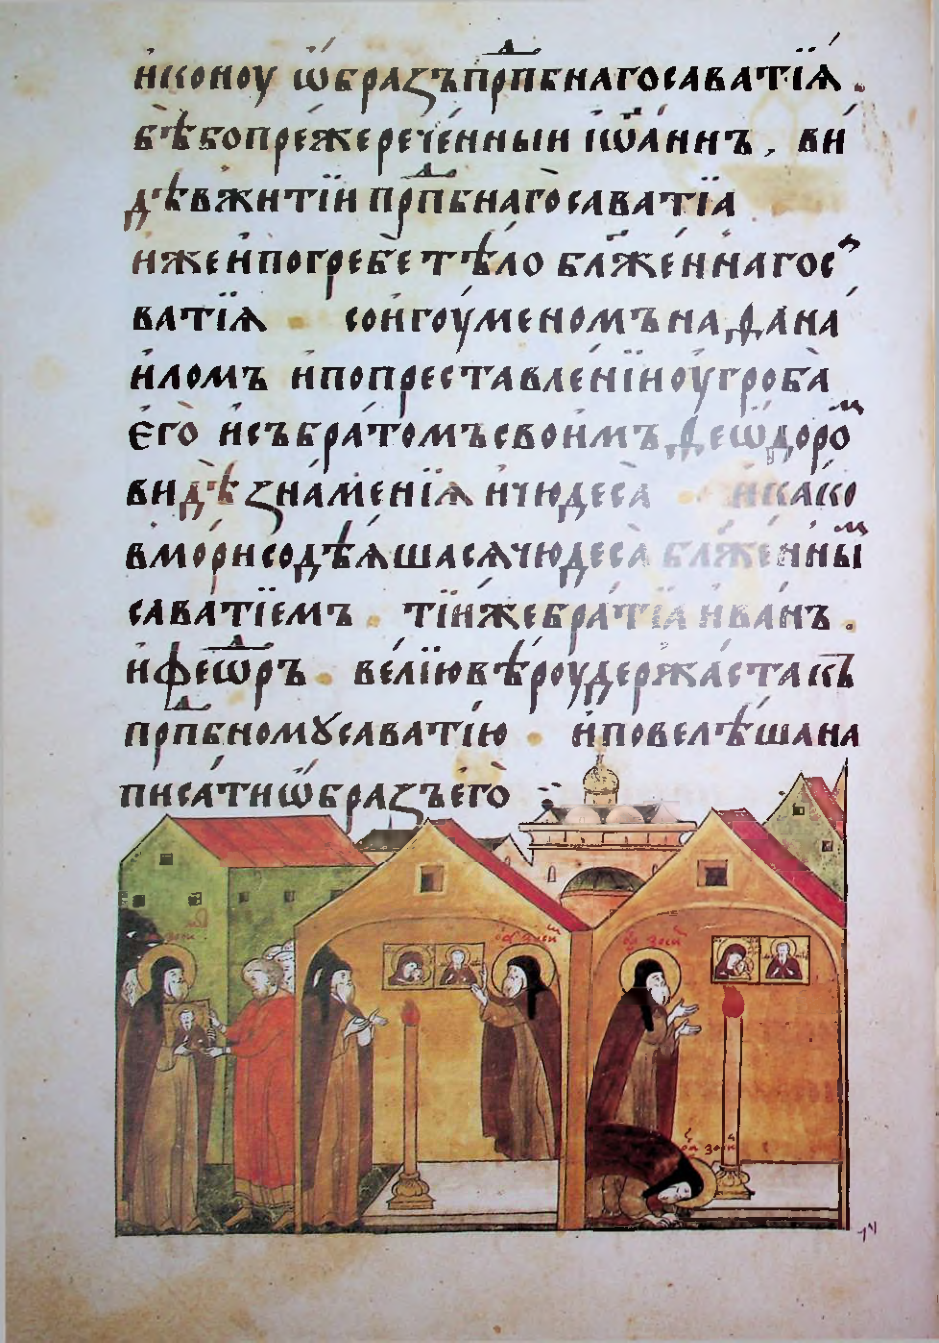 и҆коноу ѡ҆бразъ прпⷣбнаго саватїѧ .
бѣ бо преже рече́нныи і҆ѡа́ннъ , ви́
дѣ в житїи прпⷣбнаго саватїа
и҆же и҆ погребе тѣ́ло блаже́ннагѡ са
ватїѧ со и҆гоу́меномъ наⷴана́
и҆ломъ и҆ по преставле́нїи оу҆ гро́ба
є҆го̀ и҆ съ бра́томъ свои́мъ ѳеѡ́доро́ⷨ
видѣ̀ зна́менїѧ и҆ чюдеса̀ и҆ ка́ко
в мо́ри содѣ́ѧшасѧ чюдеса̀ блаже́нныⷨ
сава́тїемъ . ті́и же бра́тїа и҆ва́нъ .
и҆ феѡⷣръ . ве́лїю вѣ́роу держа́ста къ
прпⷣбному саваті́ю и҆ повелѣ́ша на
писа́ти ѡ҆́бразъ є҆го̀